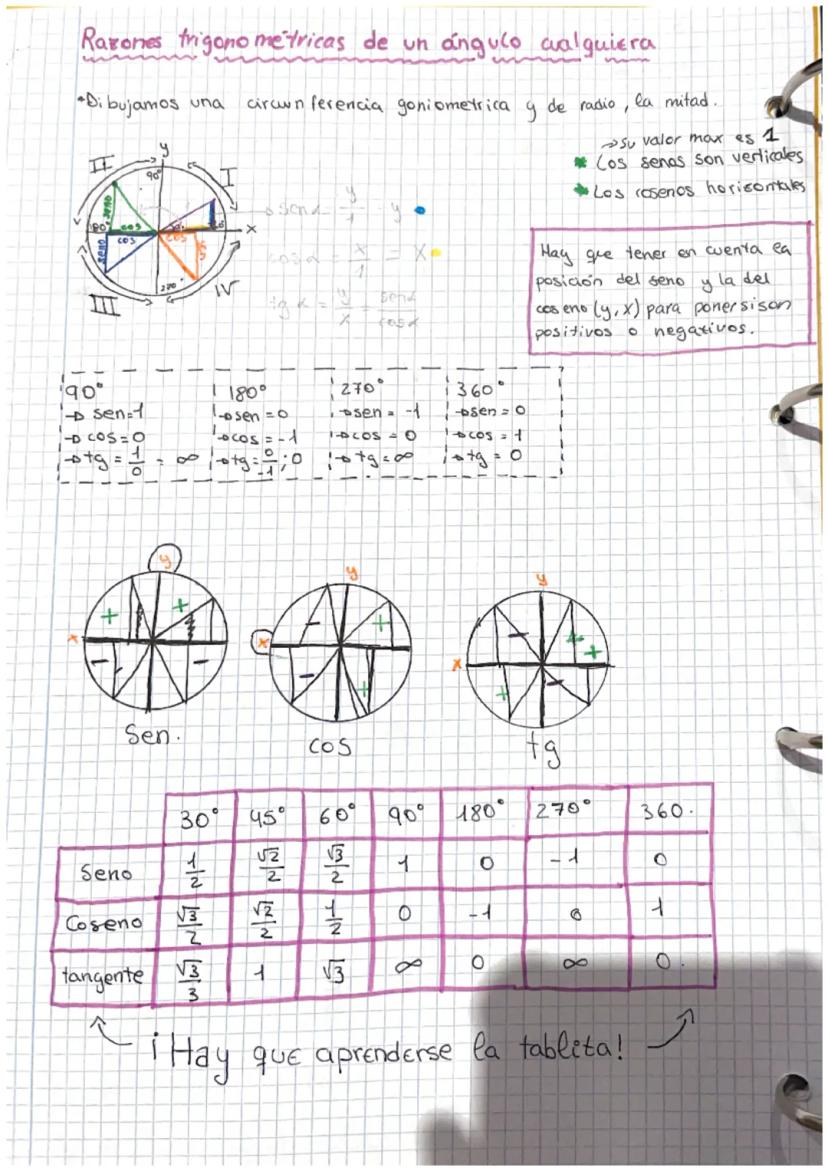 Razones trigonométricas de un ángulo cualquiera
*Dibujamos una circunferencia goniometrica y de radio, la mitad.
→ Su valor max es 1
* Los senos son verticales
* Los cosenos horizontales
y
II
90°
I
seno
180°
cos
cos
cos
x
seno
270°
III
IV
→ sen α = y/1 = y
cos α = x/1 = x
tg α = y/x = sen α/cos α
Hay que tener en cuenta la
posición del seno y la del
coseno (y, x) para poner si son
positivos o negativos.
90° 180° 270° 360°
→ sen=1 → sen = 0 → sen = -1 → sen = 0
→ cos=0 → cos = -1 → cos = 0 → cos = 1
→ tg = 1/0 = ∞ → tg = 0/-1 ; 0 → tg = ∞ → tg = 0
y
+ +
x
- -
Sen.
y
- +
x
- +
cos
y
- + +
x
+ -
tg
30° 45° 60° 90° 180° 270° 360.
Seno 1/2 √2/2 √3/2 1 0 -1 0
Coseno √3/2 √2/2 1/2 0 -1 0 1
tangente √3/3 1 √3 ∞ 0 ∞ 0.
¡Hay que aprenderse la tablita!